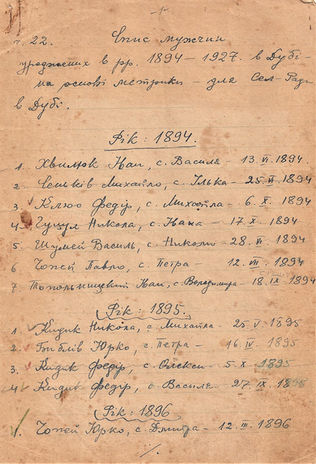 - 1 -
п. 22. Спис мужчин
уроджених в рр. 1894 – 1927. в Дубі
на основі метрики – для Сел-Ради
в Дубі.
Рік: 1894.
1. Хвилюк Іван, с. Василя – 13. VI. 1894
2. Сеньків Михайло, с. Ілька – 25. VI. 1894
3. Клюс Федір, с. Михайла – 6. X. 1894
4. Гуцул Никола, с. Івана – 17. X. 1894
5. Шумей Василь, с. Николи – 28. VI. 1894
6 Чопей Павло, с. Петра – 12. VII. 1894
7 Топольницкий Іван, с. Володимира – 18. IX. 1894
Рік: 1895.
1. Кидик Никола, с. Михайла – 25. V. 1895
2. Гриблів Юрко, с. Петра – 16. IV. 1895
3. Кидик Федір, с. Олекси – 5. X. 1895
4. Кидик Федір, с. Василя – 27. IX. 1895
Рік: 1896
1. Чопей Юрко, с. Дмитра – 12. III. 1896